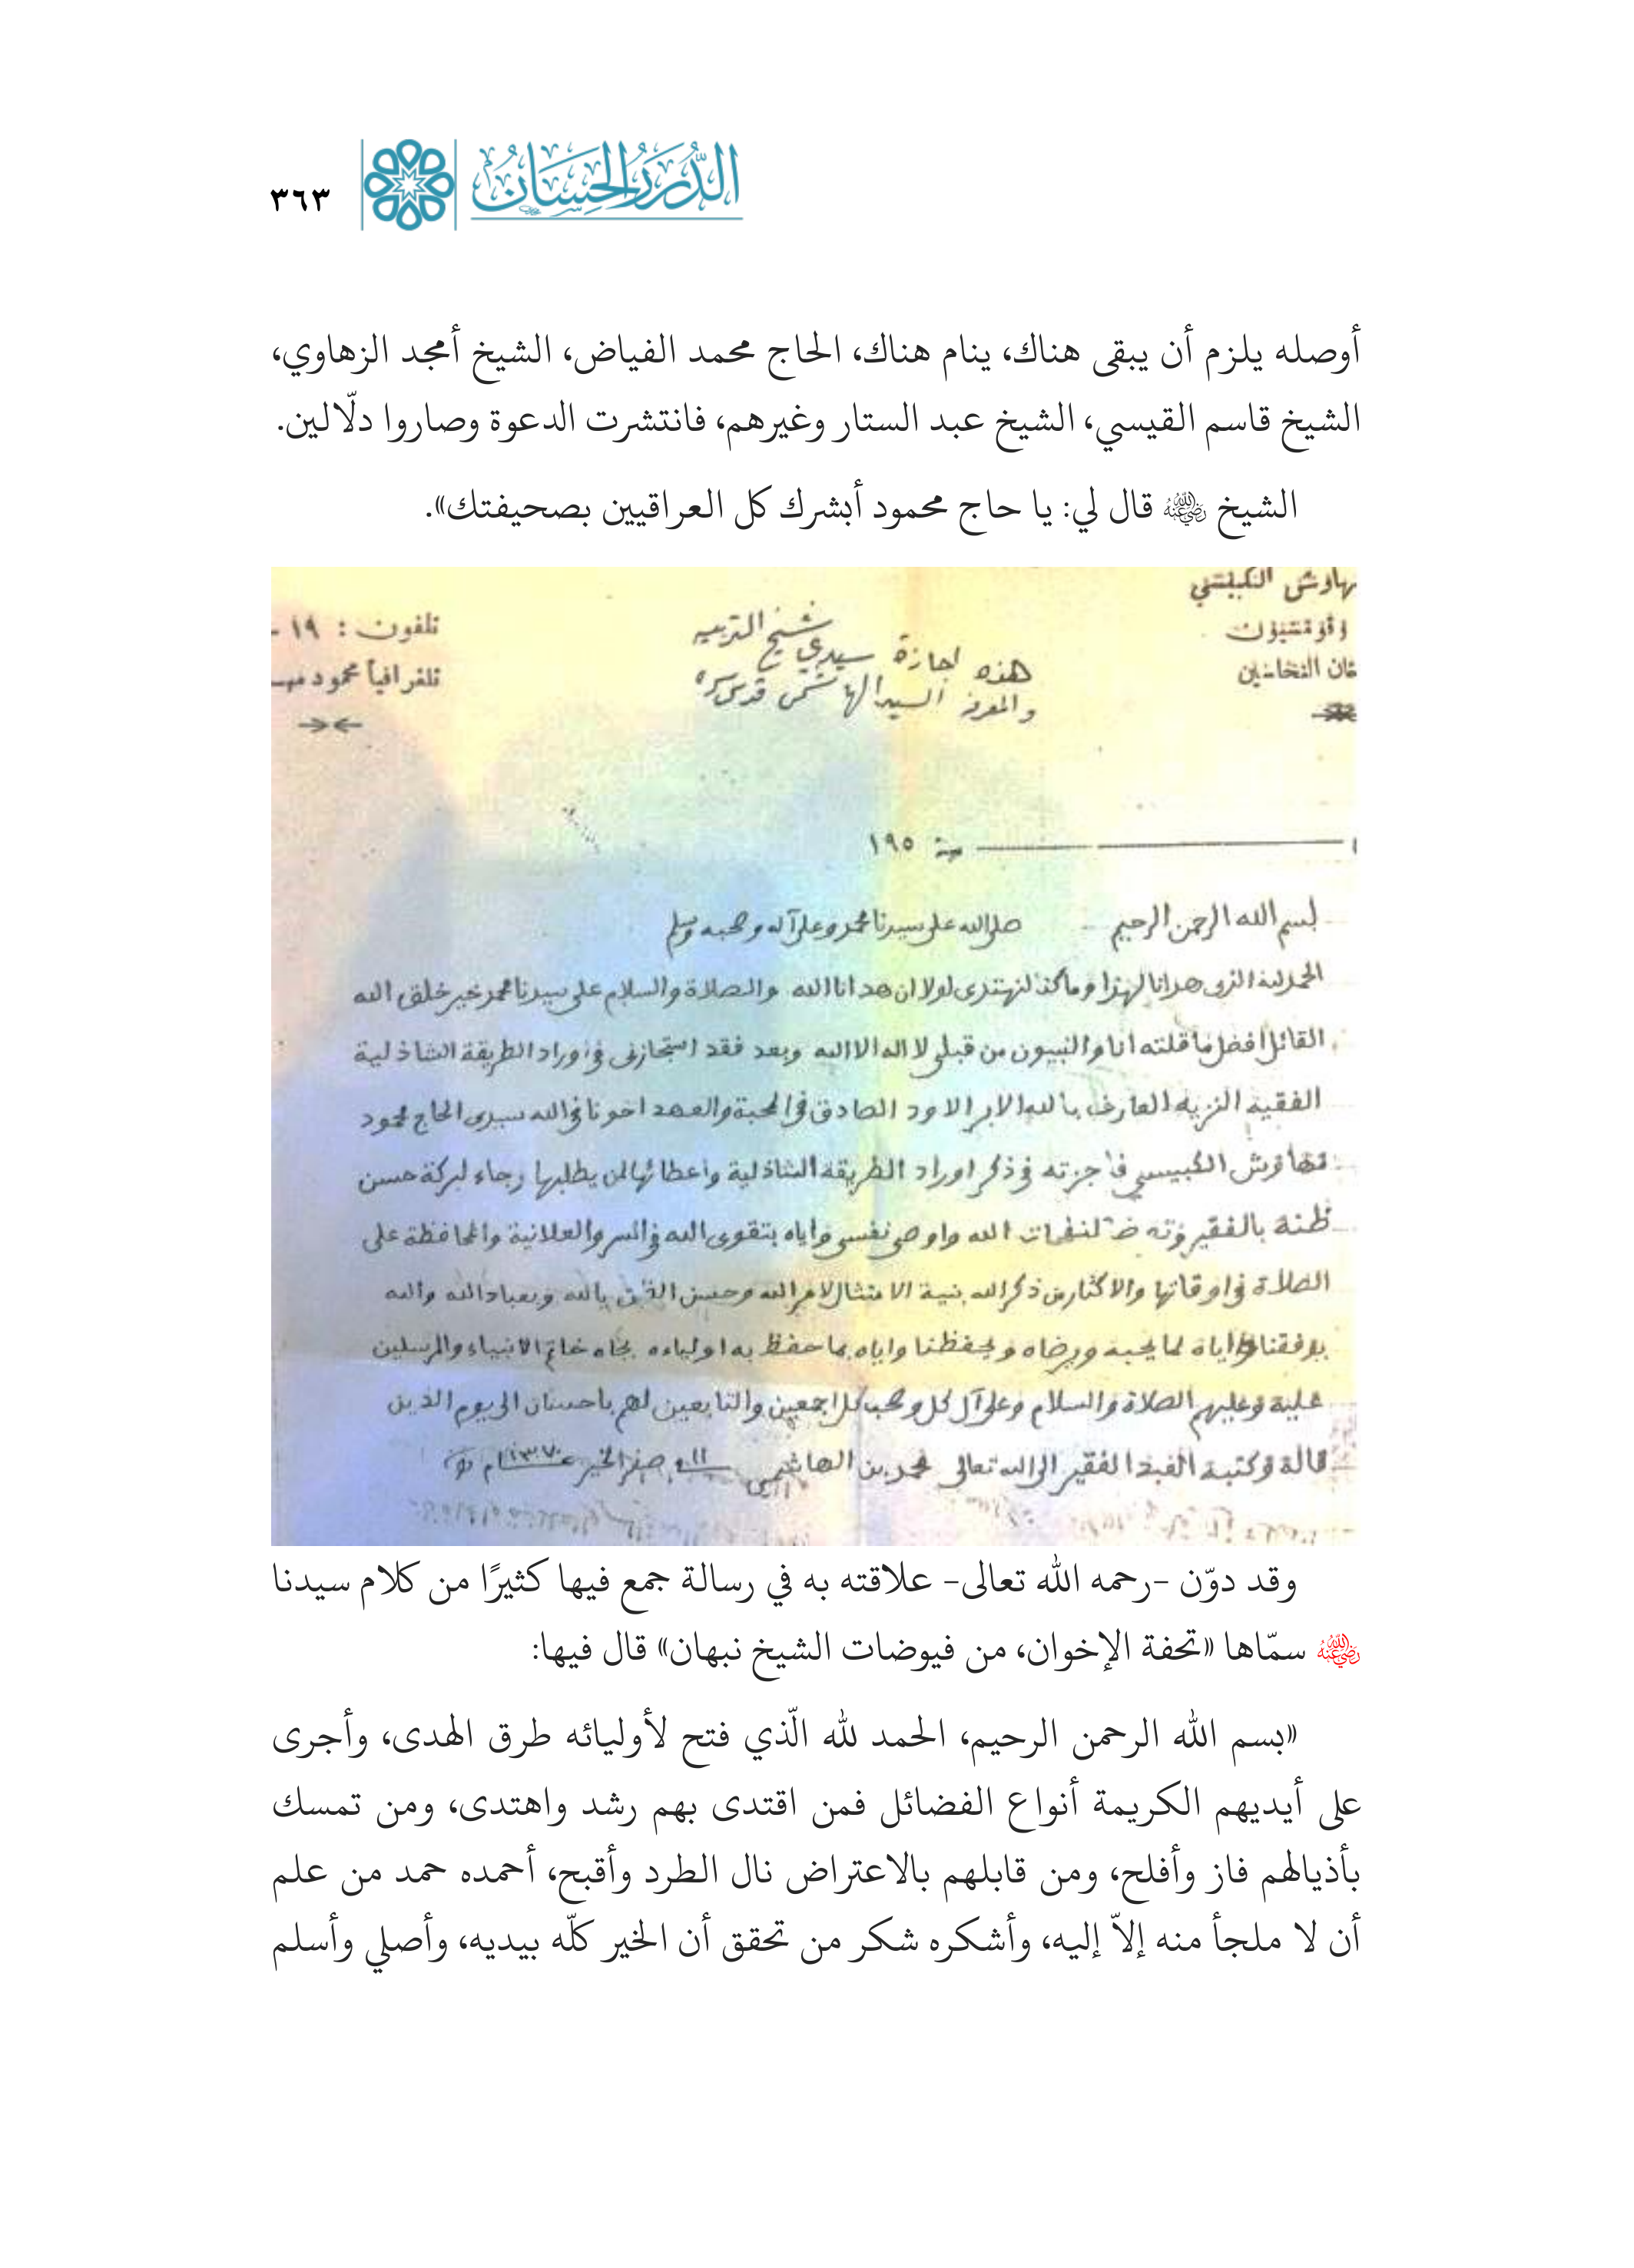 الدُّرَرُ الحِسَان
٣٦٣
أوصله يلزم أن يبقى هناك، ينام هناك، الحاج محمد الفياض، الشيخ أمجد الزهاوي،
الشيخ قاسم القيسي، الشيخ عبد الستار وغيرهم، فانتشرت الدعوة وصاروا دلّالين.
الشيخ رضي الله عنه قال لي: يا حاج محمود أبشرك كل العراقيين بصحيفتك».
هاوش الكبيسي
وقومسيون
خان النحاسين
هذه اجازة سيدي شيخ التربيه
والمعرفة السيد الهاشمي قدس سره
تلفون : ١٩ -
تلغرافياً محمود
سنة ١٩٥
بسم الله الرحمن الرحيم صلى الله على سيدنا محمد وعلى آله وصحبه وسلم
الحمد لله الذى هدانا لهذا وما كنا لنهتدى لولا ان هدانا الله والصلاة والسلام على سيدنا محمد خير خلق الله
القائل افضل ما قلته انا والنبيون من قبلى لا اله الا الله وبعد فقد استجازنى فى اوراد الطريقة الشاذلية
الفقيه النزيه العارف بالله الابر الاود الصادق فى المحبة والعهد اخونا فى الله سيدى الحاج محمود
مهاوش الكبيسي فاجزته فى ذكر اوراد الطريقة الشاذلية واعطائها لمن يطلبها رجاء لبركة حسن
ظنه بالفقير لنفحات الله واوصى نفسى واياه بتقوى الله فى السر والعلانية والمحافظة على
الصلاة فى اوقاتها والاكثار من ذكر الله بنية الامتثال لامر الله وحسن الظن بالله وبعباد الله والله
يوفقنا واياه لما يحبه ويرضاه ويحفظنا واياه بما حفظ به اولياءه بجاه خاتم الانبياء والمرسلين
عليه وعليهم الصلاة والسلام وعلى آل كل وصحب كل اجمعين والتابعين لهم باحسان الى يوم الدين
قاله وكتبه العبد الفقير الى الله تعالى محمد بن الهاشمي ١١ صفر الخير ١٣٧٠
وقد دوّن -رحمه الله تعالى- علاقته به في رسالة جمع فيها كثيرًا من كلام سيدنا
رضي الله عنه سمّاها «تحفة الإخوان، من فيوضات الشيخ نبهان» قال فيها:
«بسم الله الرحمن الرحيم، الحمد لله الّذي فتح لأوليائه طرق الهدى، وأجرى
على أيديهم الكريمة أنواع الفضائل فمن اقتدى بهم رشد واهتدى، ومن تمسك
بأذيالهم فاز وأفلح، ومن قابلهم بالاعتراض نال الطرد وأقبح، أحمده حمد من علم
أن لا ملجأ منه إلاّ إليه، وأشكره شكر من تحقق أن الخير كلّه بيديه، وأصلي وأسلم